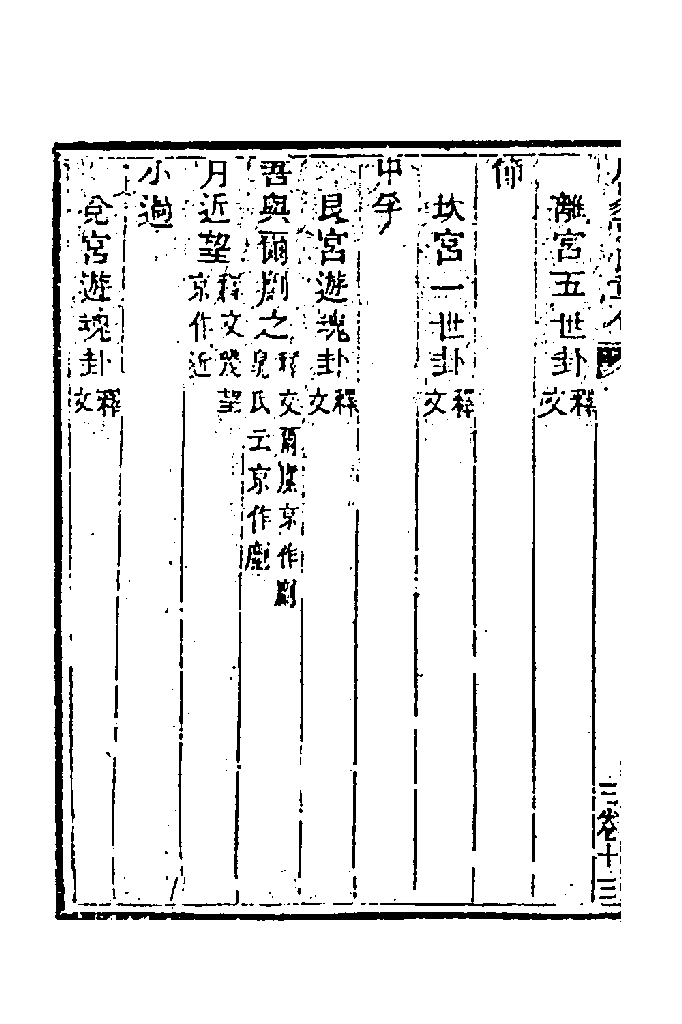 離宮五世卦釋文
節
坎宮一世卦釋文
中孚
艮宮遊魂卦釋文
吾與爾劘之釋文爾縻京作劘晁氏云京作
月近望釋文幾望京作近
小過
兌宮遊魂卦釋文
三卷十三